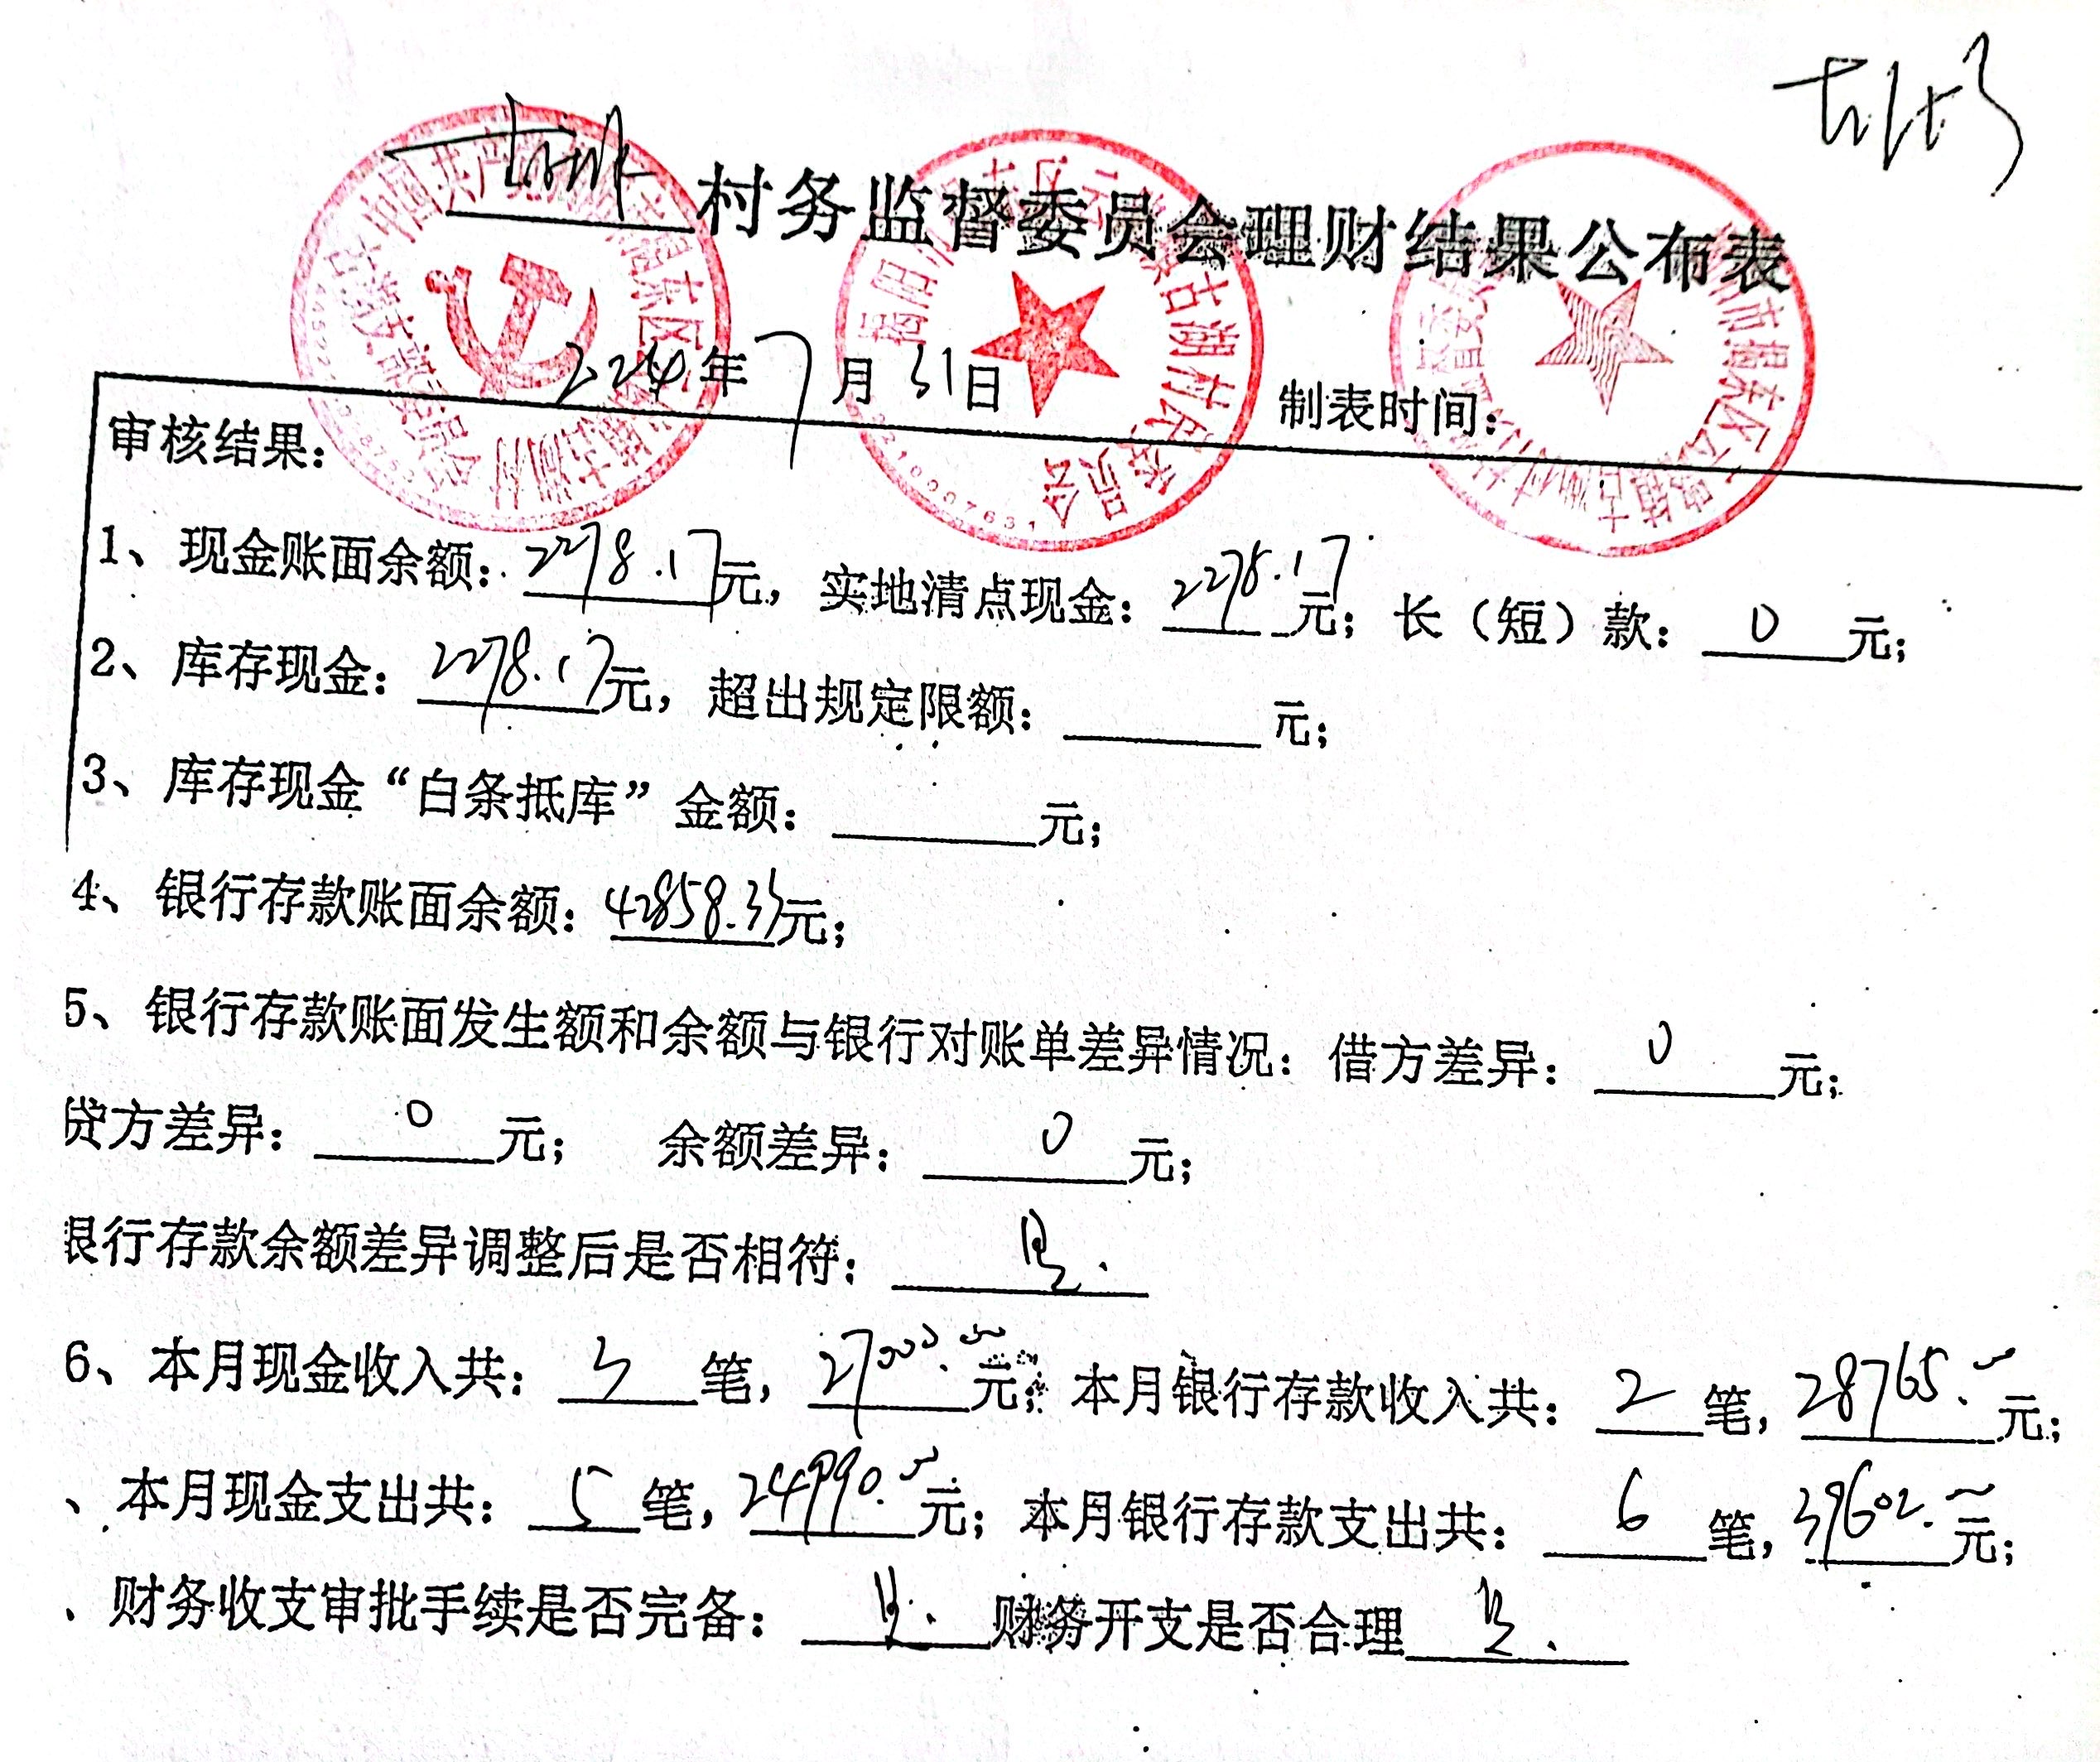 古湖村务监督委员会理财结果公布表
2024年7月31日 制表时间：
审核结果：
1、现金账面余额：2278.17元，实地清点现金：2278.17元；长（短）款：0元；
2、库存现金：2278.17元，超出规定限额：元；
3、库存现金“白条抵库”金额：元；
4、银行存款账面余额：42858.33元；
5、银行存款账面发生额和余额与银行对账单差异情况：借方差异：0元；
贷方差异：0元； 余额差异：0元；
银行存款余额差异调整后是否相符：是.
6、本月现金收入共：3笔，27000.00元；本月银行存款收入共：2笔，28765.00元；
、本月现金支出共：5笔，24990.00元；本月银行存款支出共：6笔，39602.00元；
、财务收支审批手续是否完备：是.财务开支是否合理是.